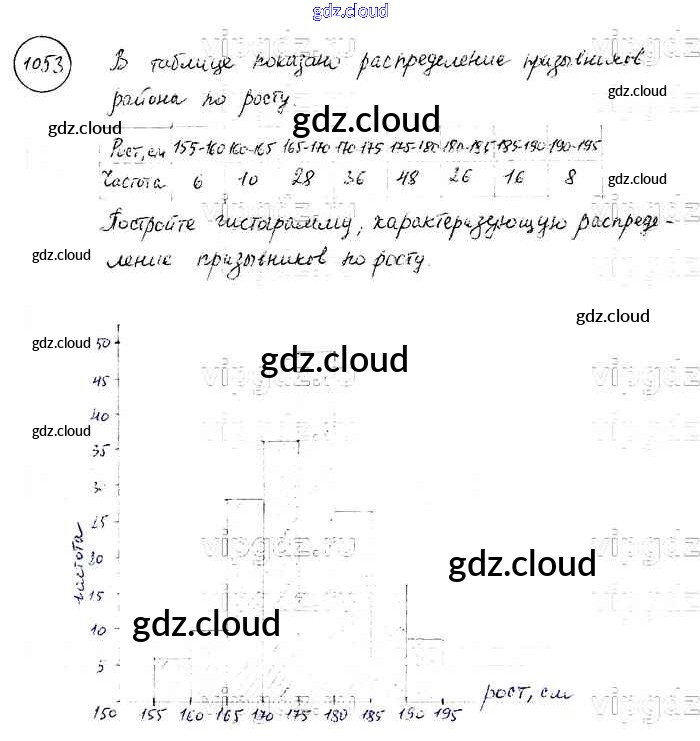 gdz.cloud
1053. В таблице показано распределение призывников
района по росту.
gdz.cloud
gdz.cloud
gdz.cloud
Рост, см 155-160 160-165 165-170 170-175 175-180 180-185 185-190 190-195
Частота 6 10 28 36 48 26 16 8
gdz.cloud
Постройте гистограмму, характеризующую распреде-
ление призывников по росту.
gdz.cloud
gdz.cloud
gdz.cloud
gdz.cloud
gdz.cloud
50
45
40
35
30
25
20
15
10
5
частота
vipgdz.ru
gdz.cloud
gdz.cloud
рост, см
150 155 160 165 170 175 180 185 190 195